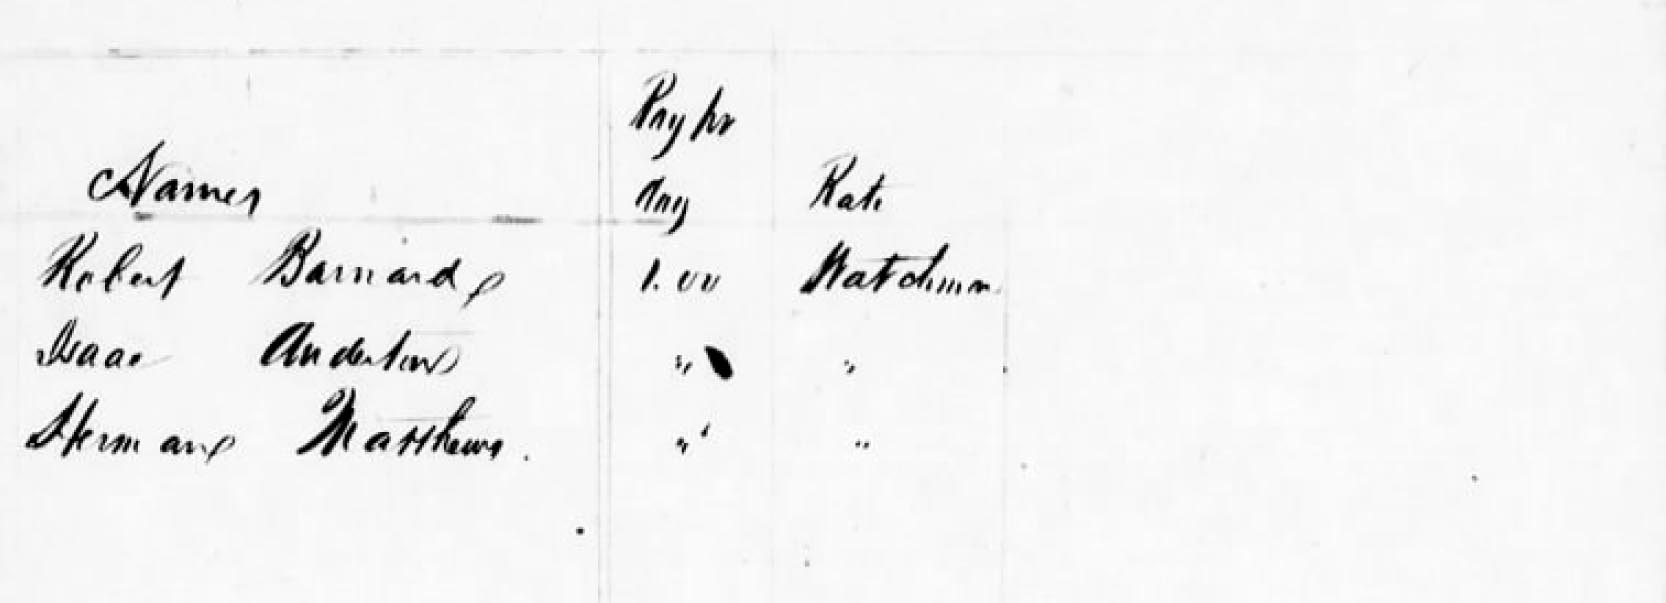 Pay pr
Names day Rate
Robert Barnard 1.00 Watchman
Isaac Anderson " "
Herman Matthews. " "